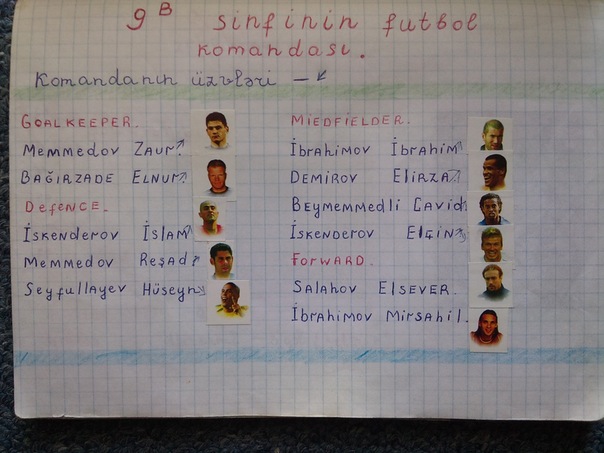 9 B sinfinin futbol
komandası.
Komandanın üzvləri –
GOALKEEPER.
Memmedov ZAUR
BAĞIRZADE ELNUR
Defence.
İskenderov İslam
Memmedov Reşad
Seyfullayev Hüseyn
MIEDFIELDER.
İbrahimov İbrahim
DEMIROV Elirza
Beymemmedli Cavid
İskenderov Elçin
FORWARD.
Salahov Elsever.
İbrahimov Mirsahil.